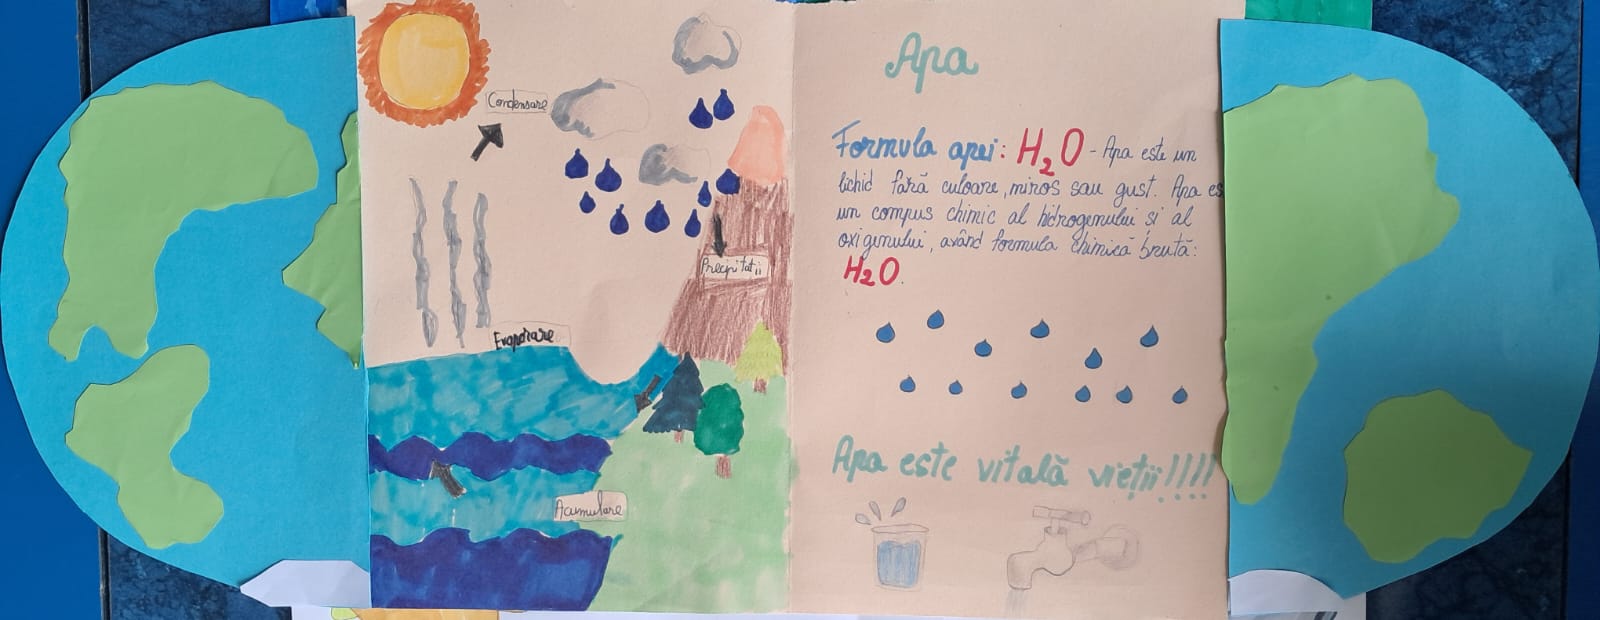 Condensare
Precipitatii
Evaporare
Acumulare
Apa
Formula apei: H₂O - Apa este un
lichid fără culoare, miros sau gust. Apa es
un compus chimic al hidrogenului și al
oxigenului, având formula chimică brută:
H₂O.
Apa este vitală vieții!!!!